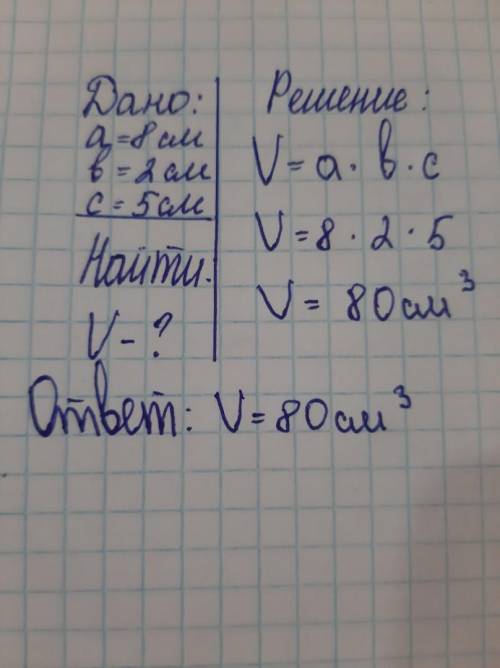 Дано:
a=8см
в=2см
с=5см
Найти.
V-?
Решение:
V=a·в·c
V=8·2·5
V=80см³
Ответ: V=80см³